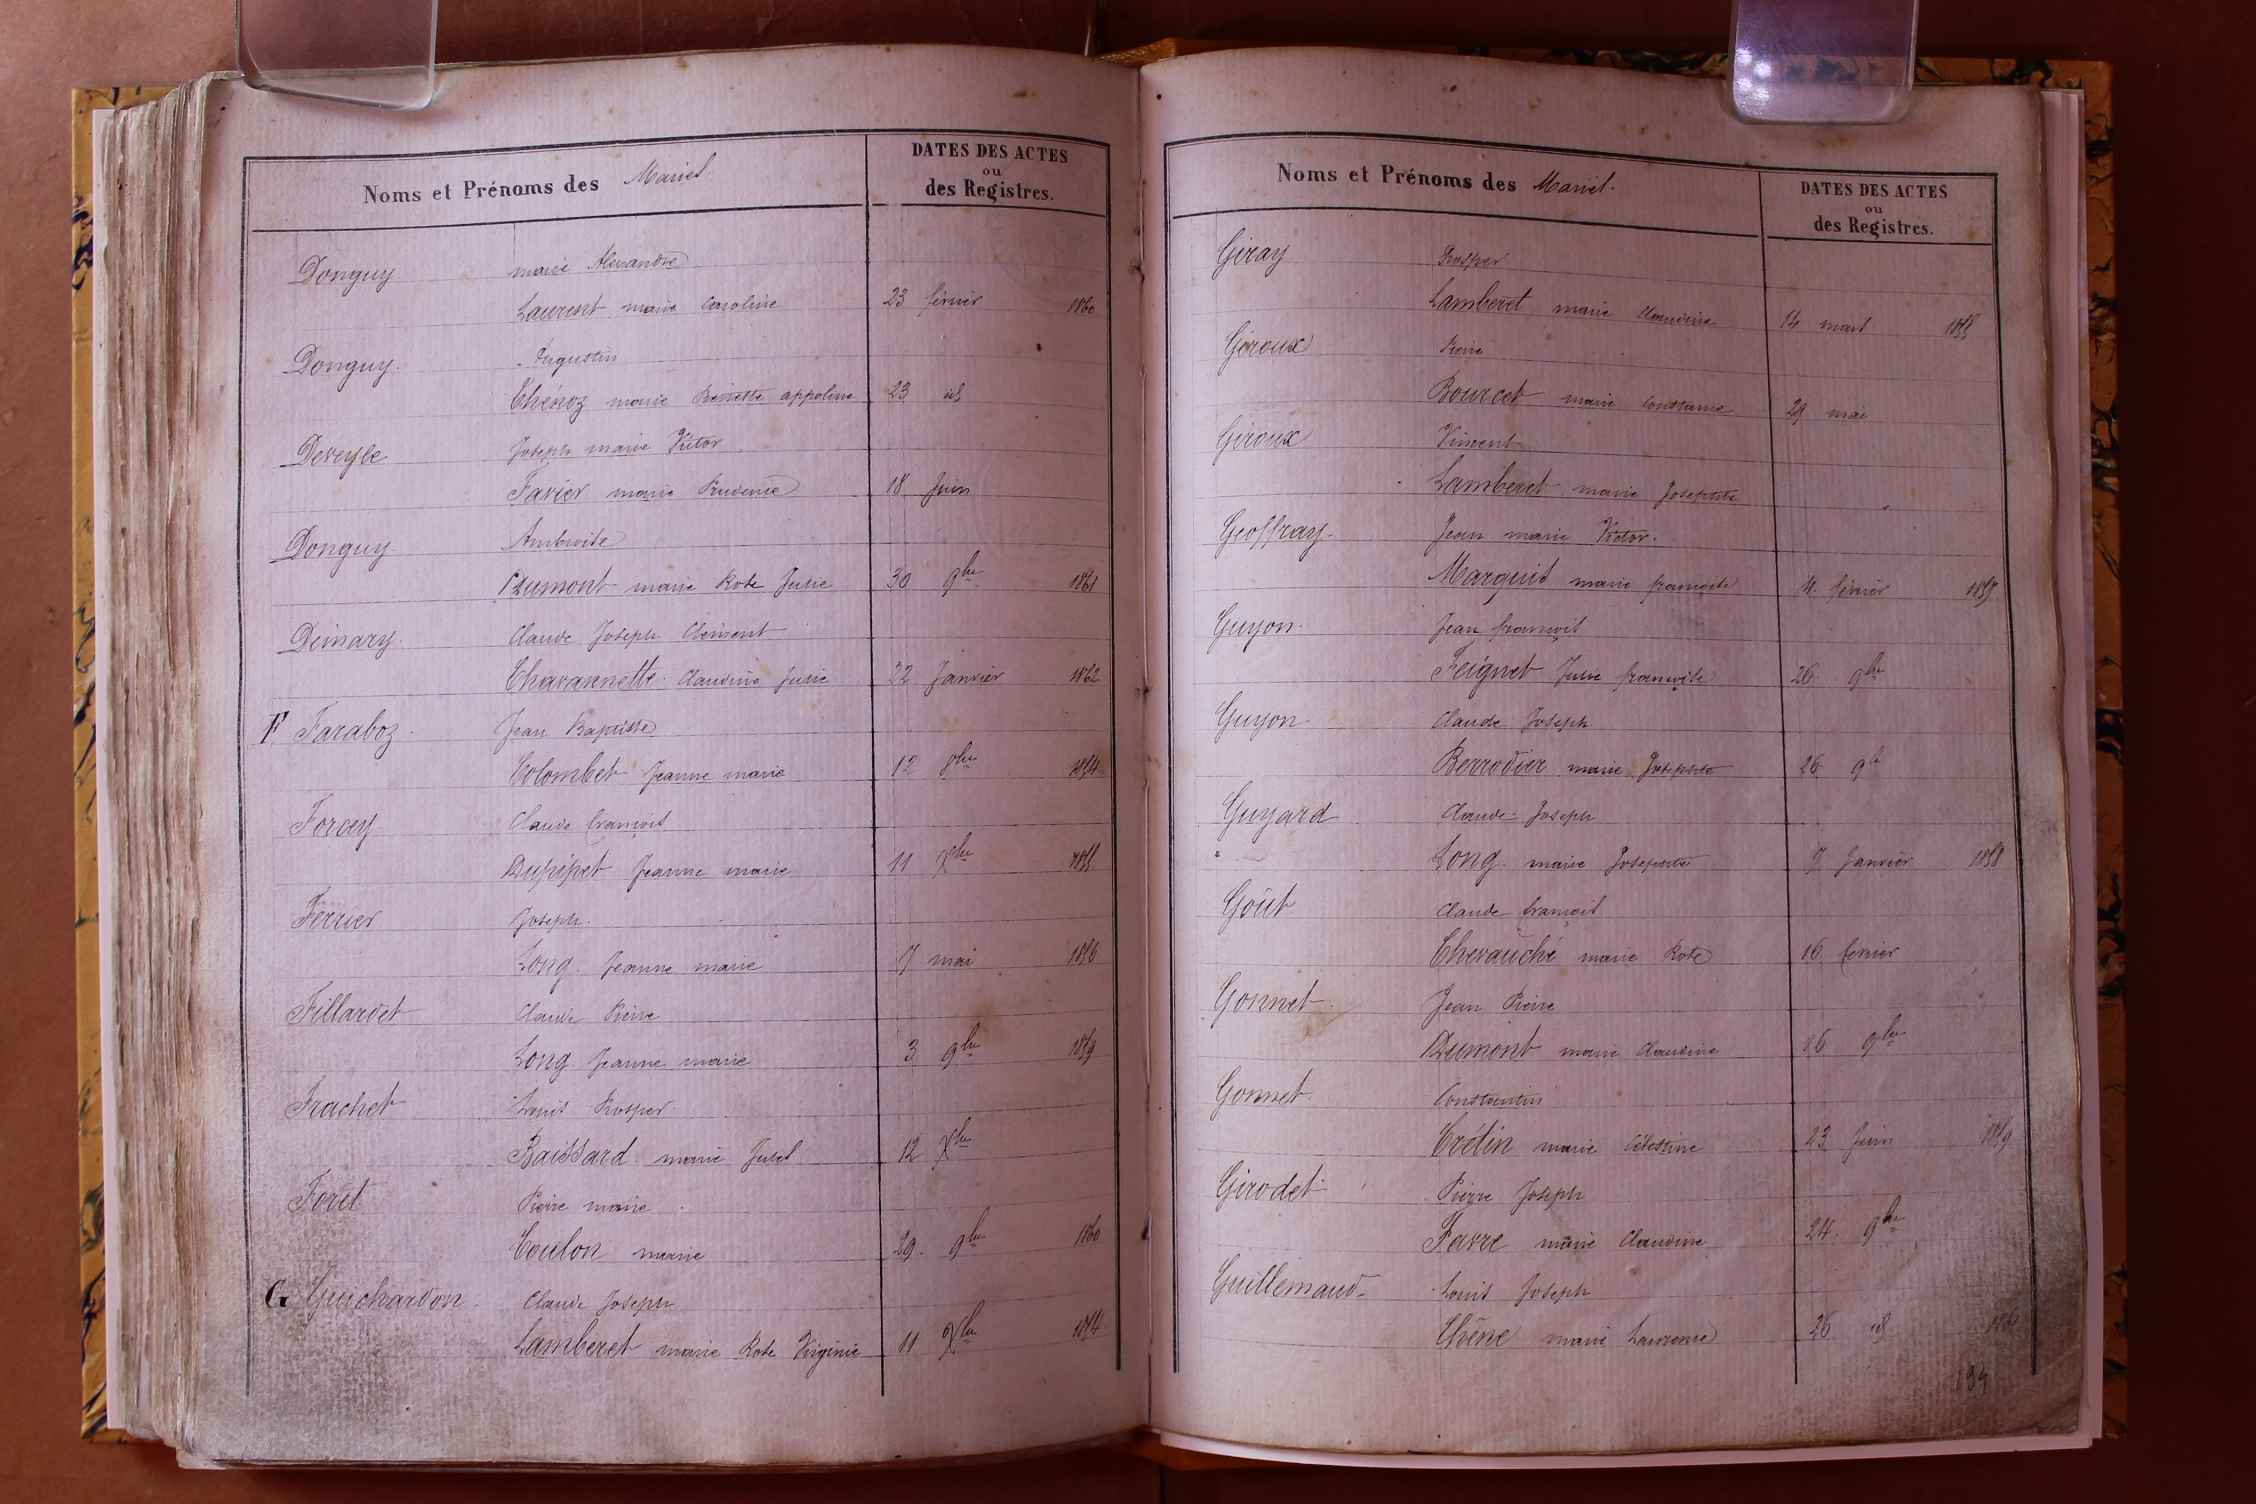 Noms et Prénoms des Mariés.
DATES DES ACTES
ou
des Registres.
Donguy marie Alexandre
Laurent marie Caroline 23 février 1860
Donguy. Augustin
Thénoz marie Pierrette appoline 23 id
Deveyle Joseph marie Victor
Favier marie Prudence 18 Juin
Donguy Ambroise
Dumont marie Rose Julie 30 9bre 1861
Deimary. Claude Joseph Clément
Chavannette Claudine Julie 22 Janvier 1862
F. Faraboz. Jean Baptiste
Colombet Jeanne marie 12 8bre 1854
Forcey Claude françois
Dupipet Jeanne marie 11 Xbre 1855
Ferrier Joseph.
Long Jeanne marie 7 mai 1856
Fillardet Claude Pierre
Long Jeanne marie 3 9bre 1859
Frachet Louis Prosper
Baissard marie 12 Xbre
Foret Pierre marie
Coulon marie 29. 9bre 1860
G Guichardon Claude Joseph
Lamberet marie Rose Virginie 11 Xbre 1854
Noms et Prénoms des Mariés.
DATES DES ACTES
ou
des Registres.
Giray Prosper
Lamberet marie Claudine 14 mars 1855
Giroux Pierre
Bourcet marie Constance 29 mai
Giroux Vincent
Lamberet marie Josephte "
Geoffray. Jean marie Victor.
Marguis marie françoise 4 février 1857
Guyon. Jean françois
Feignet Julie françoise 26 9bre
Guyon. Claude Joseph
Berrodier marie Josephte 26 9b
Guyard Claude-Joseph
" Long marie Josephte 7 Janvier 1858
Goût Claude françois
Chevauché marie Rose 16 février
Gonnet Jean Pierre
Dumont marie Claudine 16 9bre
Gonnet Constantin
Crétin marie Célestine 23 Juin 1859
Girodet Pierre Joseph
Favre marie Claudine 24. 9bre
Guillemaud Louis Joseph
Chêne marie Laurence 26 id
194